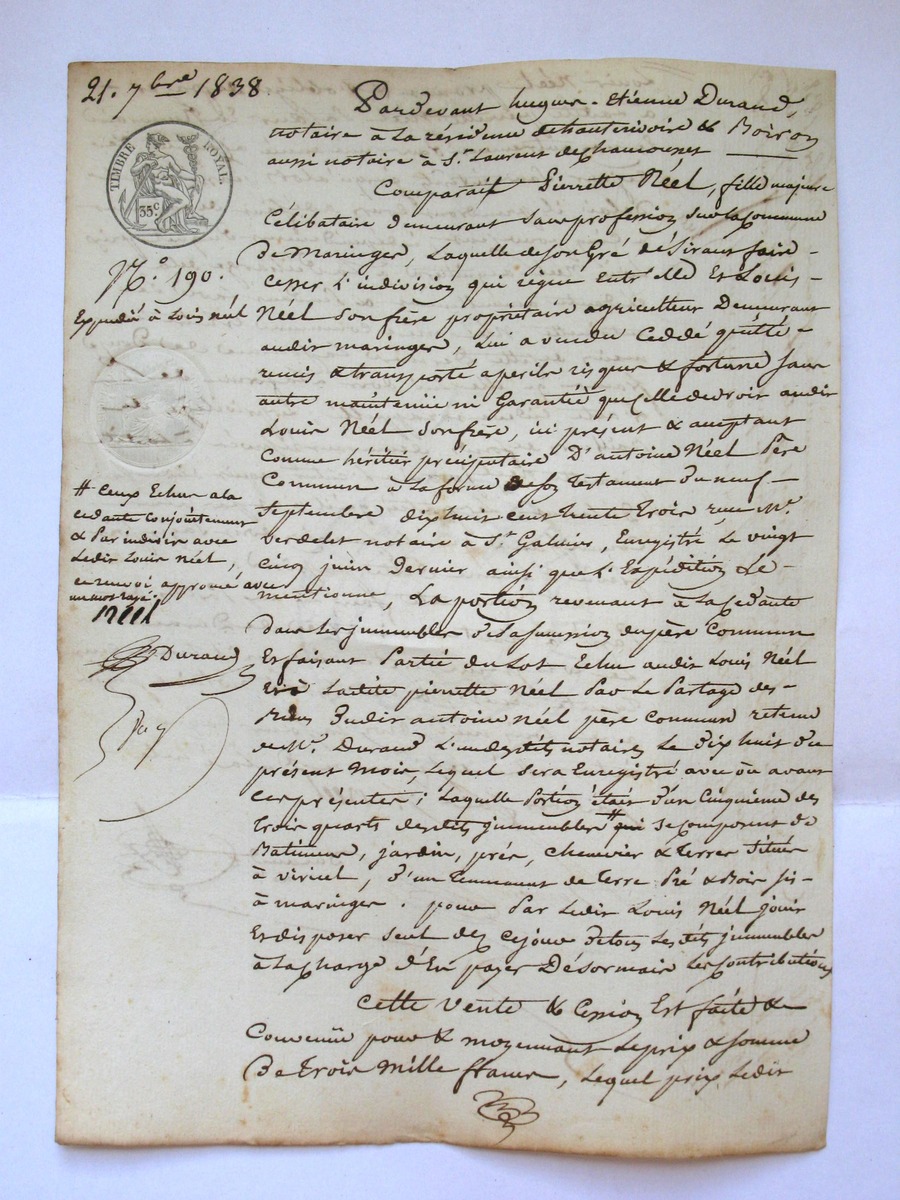 21. 7bre 1838
TIMBRE ROYAL.
35 c.
N.o 190.
Expédié à Louis néel
# Ceux Echus a la
cedante conjointement
& Par indivis avec
Ledit Louis Néel,
ce renvoi approuvé avec
un mot rayé.
néel
Durand
Pardevant hugues-Etienne Durand,
notaire à La résidence de hauterivoire & Boiron
aussi notaire à St. Laurent de Chamousset
Comparait Pierrette Néel, fille majeure
Célibataire demeurant sans profession sur la Commune
De Maringes, Laquelle de son Gré désirant faire
cesser L'indivision qui règne Entr'elle Et Louis
Néel son frère propriétaire agriculteur Demeurant
audit maringes, Lui a vendu Ceddé quitté
remis & transporté a perils risques & fortune sans
autre maintenüe ni Garantie que celle de droit audit
Louis Néel son frère, ici présent & acceptant
comme héritier préciputaire D'antoine Néel Père
Commun à La forme de son Testament du neuf
Septembre dix huit cent trente trois reçu Me.
Verdelet notaire à St. Galmier, Enregistré Le vingt
cinq juin Dernier ainsi que L'Expédition Le
mentionne, La portion revenant à La Cedante
dans Les jmmeubles de La Succession du père Commun
Et faisant Partie du Lot Echu audit Louis Néel
Et à Ladite pierrette Néel Par Le Partage des
Biens dudit antoine néel père commun retenu
de Me. Durand L'un desdits notaires Le dix huit du
présent Mois, Lequel sera Enregistré avec ou avant
Ces présentes; Laquelle Portion étant d'un Cinquième des
trois quarts desdits jmmeubles # qui se Composent de
Batiments, jardin, prés, chenevier & terres situés
à viricel, d'un Tennement de terre Pré & Bois sis
à maringes. pour Par Ledit Louis Néel jouir
Et disposer seul dez ce jour de tous Lesdits jmmeubles
à La Charge d'En payer Désormais Les Contributions
Cette vente & Cession Est faite &
Convenüe pour & moyennant Le prix & somme
De trois mille francs, Lequel prix Ledit